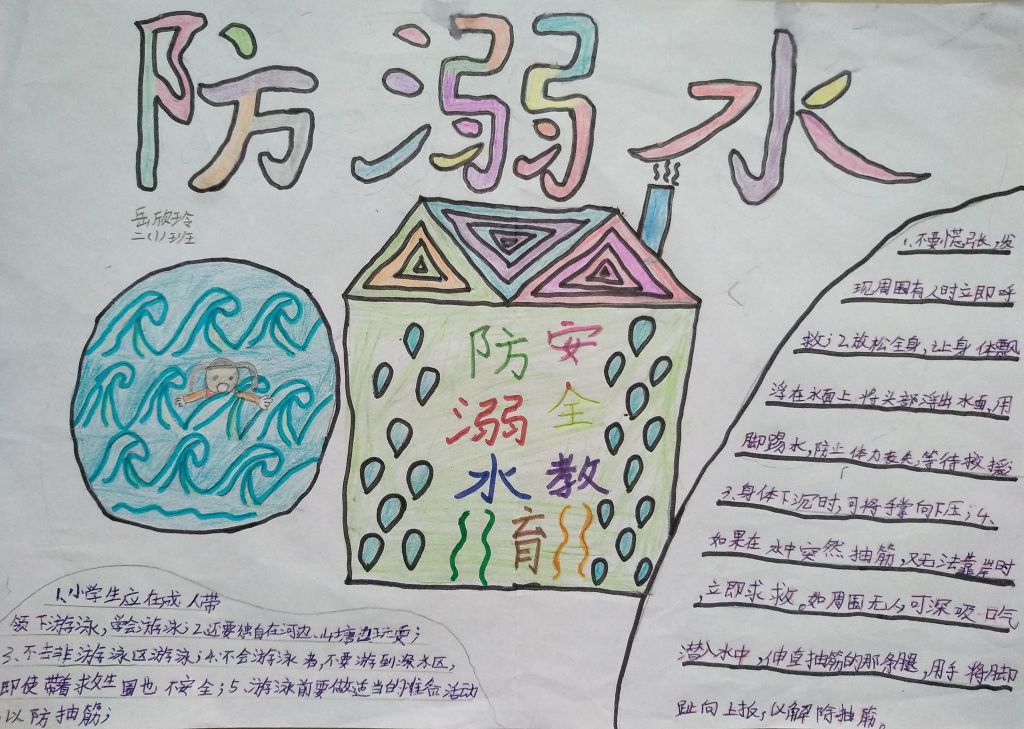 防溺水
岳欣玲
二(1)班
防溺水
安全教育
1、小学生应在成人带
领下游泳，学会游泳；2、还要独自在河边、山塘边玩耍；
3、不去非游泳区游泳；4、不会游泳者，不要游到深水区，
即使带着救生圈也不安全；5、游泳前要做适当的准备活动
以防抽筋；
1、不要慌张，发
现周围有人时立即呼
救；2、放松全身，让身体飘
浮在水面上，将头部浮出水面，用
脚踢水，防止体力丧失，等待救援；
3、身体下沉时，可将手掌向下压；4、
如果在水中突然抽筋，又无法靠岸时
，立即求救。如周围无人，可深吸口气
潜入水中，伸直抽筋的那条腿，用手将脚
趾向上扳，以解除抽筋。